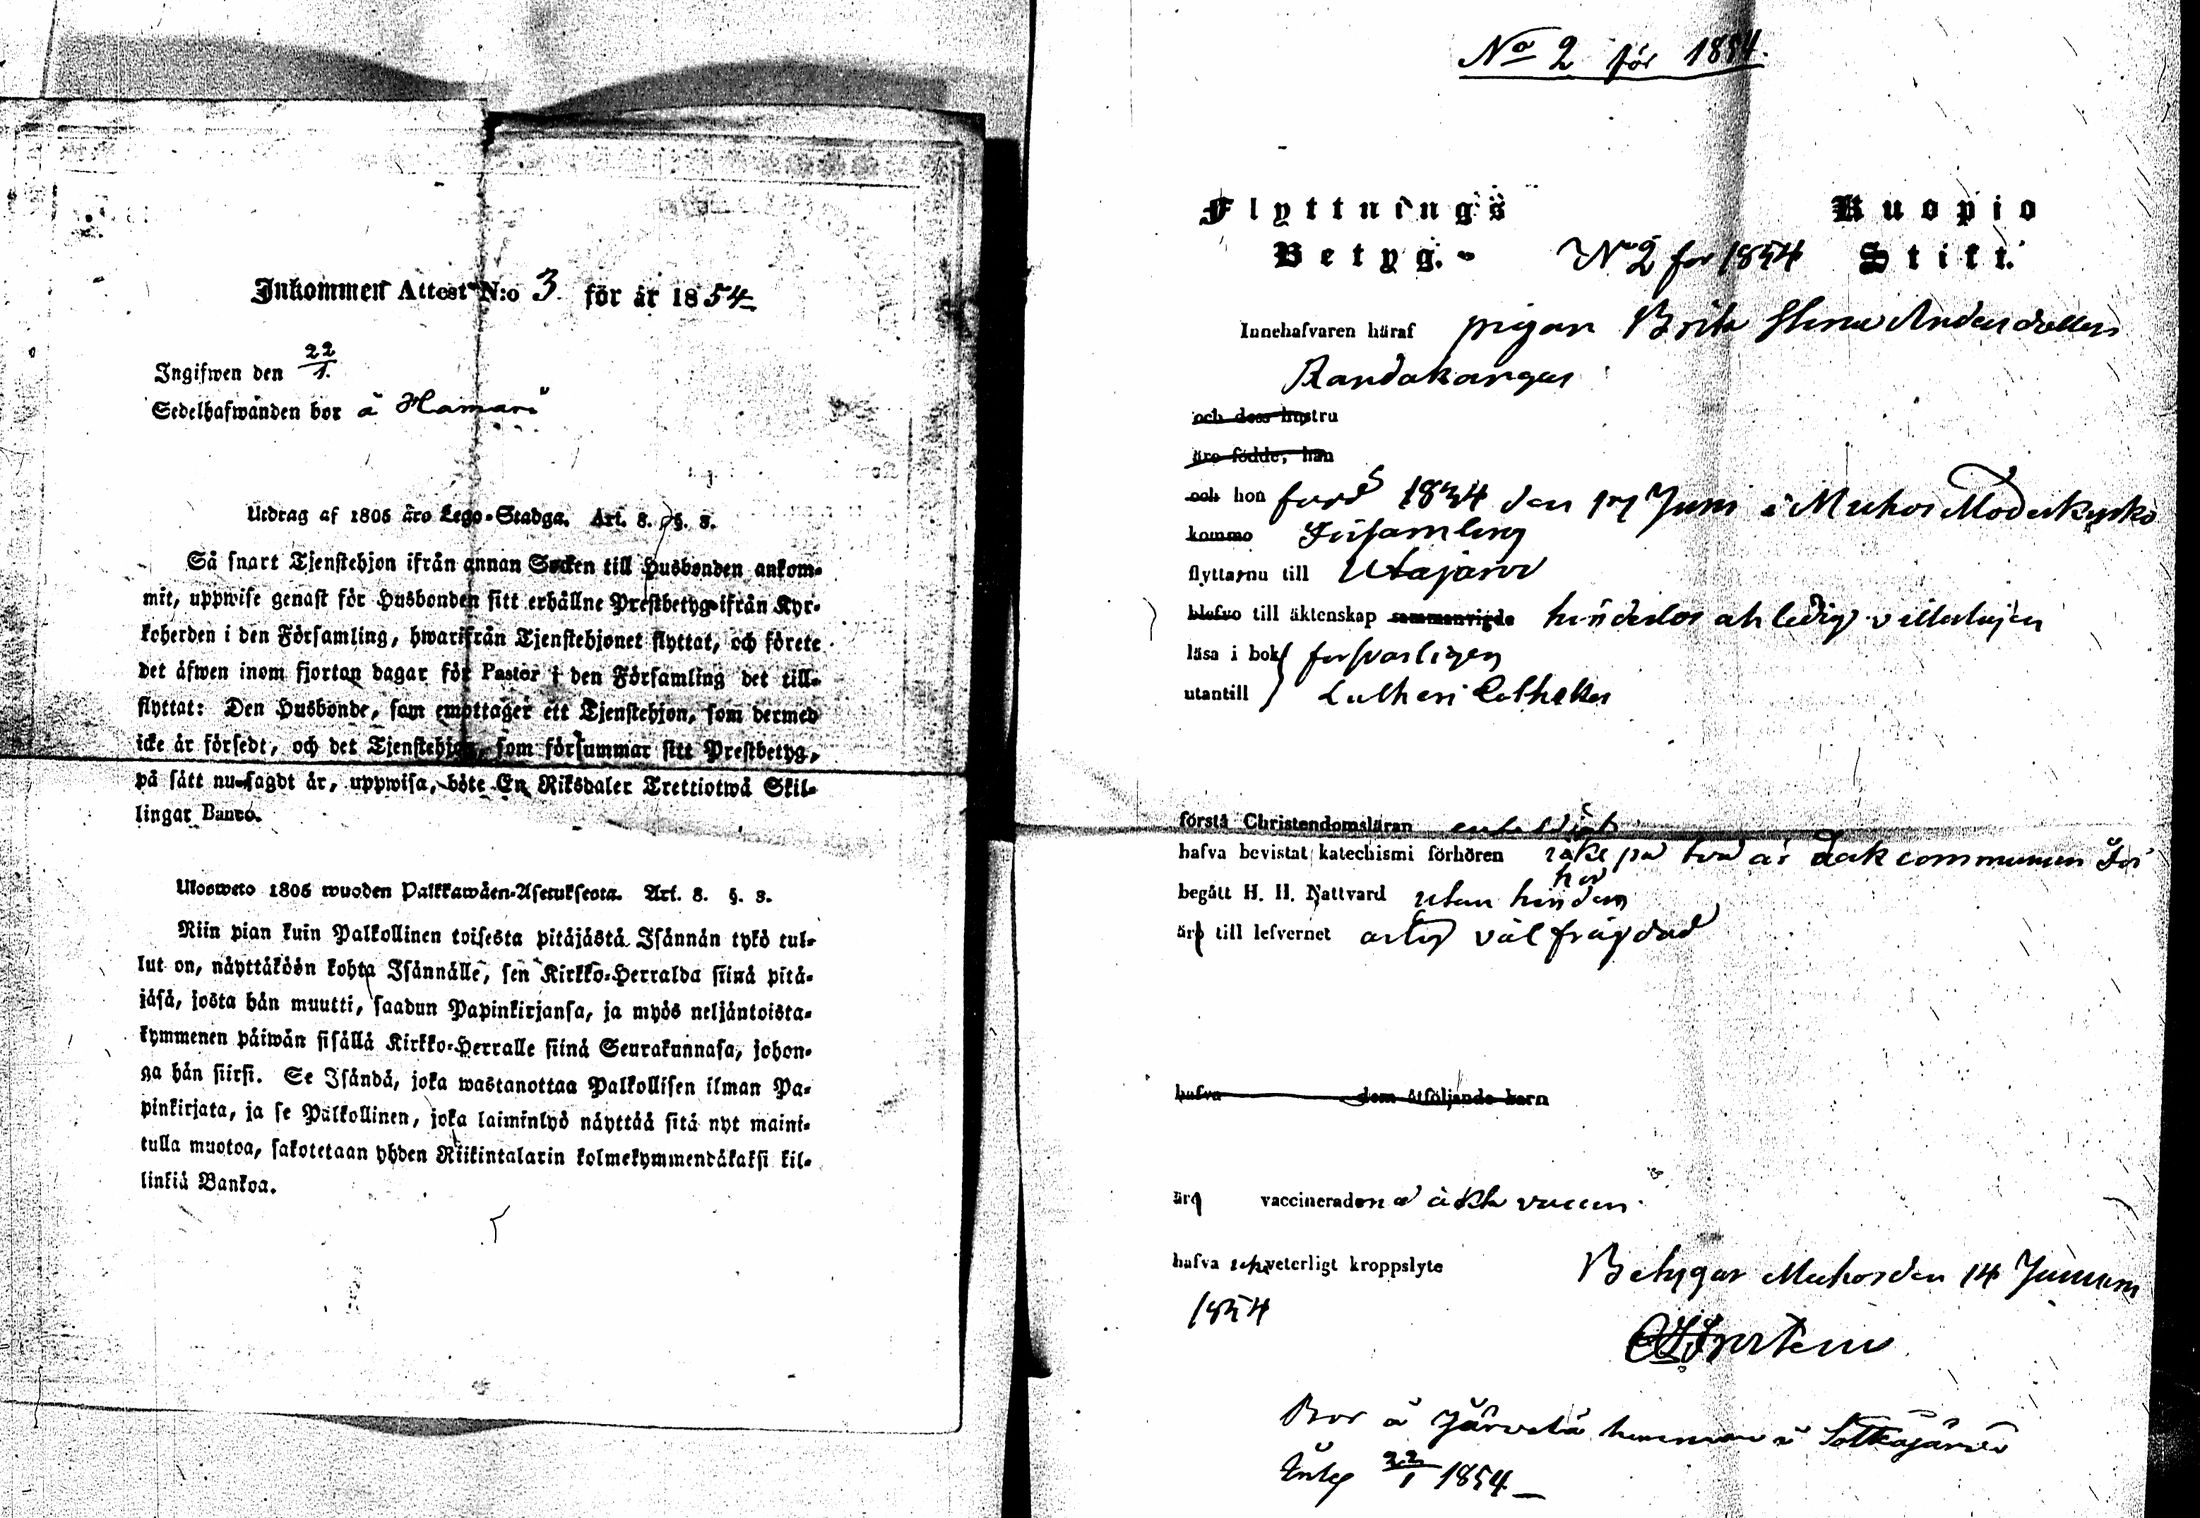 Inkommen Attest N:o 3 för år 1854
Ingifwen den 22/1.
Sedelhafwanden bor å Hamari
Utdrag af 1805 års Lego-Stadga. Art. 8. §. 8.
Så snart Tjenstehjon ifrån annan Socken till Husbonden ankom-
mit, uppwise genast för Husbonden sitt erhållne Prestbetyg ifrån Kyr-
koherden i den Församling, hwarifrån Tjenstehjonet flyttat, och förete
det äfwen inom fjorton dagar för Pastor i den Församling det till-
flyttat: Den Husbonde, som emottager ett Tjenstehjon, som dermed
icke är försedt, och det Tjenstehjon, som försummar sitt Prestbetyg,
på sätt nu sagdt är, uppwisa, böte En Riksdaler Trettiotwå Skil-
lingar Banco.
Ulosweto 1805 wuoden Palkkawäen-Asetuksesta. Art. 8. §. 8.
Niin pian kuin Palkollinen toisesta pitäjästä Isännän tykö tul-
lut on, näyttäköön kohta Isännälle, sen Kirkko-Herralda siinä pitä-
jäsä, josta hän muutti, saadun Papinkirjansa, ja myös neljäntoista-
kymmenen päiwän sisällä Kirkko-Herralle siinä Seurakunnasa, johon-
ga hän siirsi. Se Isändä, joka wastanottaa Palkollisen ilman Pa-
pinkirjata, ja se Palkollinen, joka laiminlyö näyttää sitä nyt maini-
tulla muotoa, sakotetaan yhden Riikintalarin kolmekymmendäkaksi kil-
linkiä Bankoa.
No 2 för 1854.
Flyttnings Kuopio
Betyg. No 2 for 1854 Stift.
Innehafvaren häraf pigan Brita Stina Andersdotter
Randakangas
och dess hustru
äro födde, han
och hon född 1834 den Juni i Muhos Moderkyrko
kommo Församling
flyttar nu till Utajärvi
blefvo till äktenskap sammanvigde hinderlös och ledig
läsa i bok försvarligen
utantill Lutheri
förstå Christendomsläran enkeldigt
hafva bevistat katechismi förhören på två år communion för
begått H. H. Nattvard utan hinder
äro till lefvernet ärlig väl frägdad
hafva dem åtföljande barn
äro vaccinerade äkta vaccin
hafva veterligt kroppslyte Betygar Muhos den 14 Januari
1854
Bor å Järvelä hemman i Sotkajärvi
22/1 1854